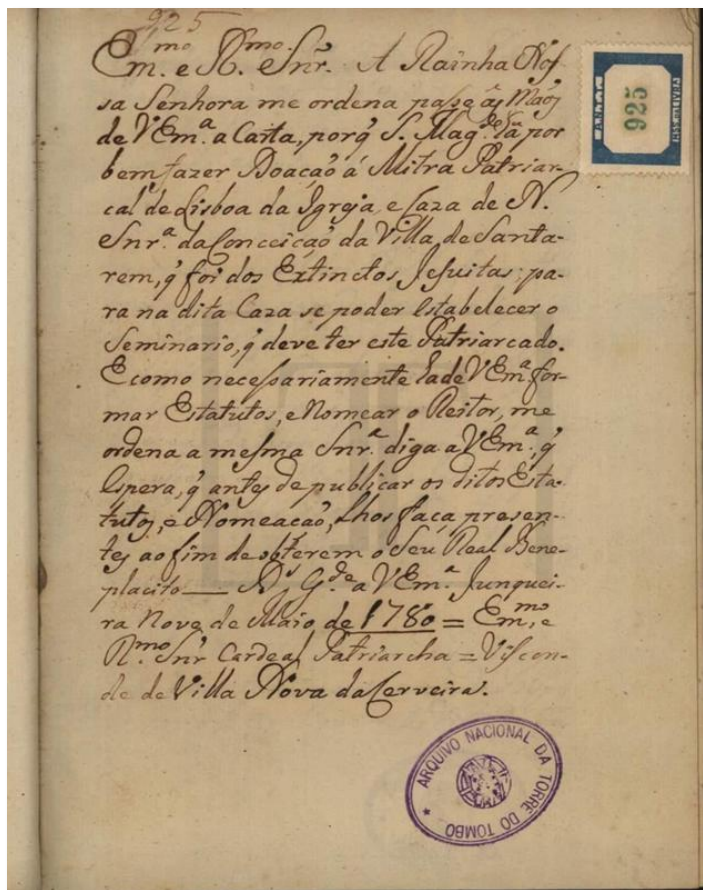 925
Em.mo e R.mo Snr. A Rainha Nos-
sa Senhora me ordena passe ás Mãos
de VEm.ª a Carta, porq̃ S. Mag.de há por
bem fazer Doação á Mitra Patriar-
cal de Lisboa da Igreja, e Caza de N.
Snr.ª da Conceição da Villa de Santa-
rem, q̃ foi dos Extinctos Jesuitas: pa-
ra na dita Caza se poder estabelecer o
Seminario, q̃ deve ter este Patriarcado.
E como necessariamente hade VEm.ª for-
mar Estatutos, e Nomear o Reitor, me
ordena a mesma Snr.ª diga a VEm.ª, q̃
espera, q̃ antes de publicar os ditos Esta-
tutos, e Nomeação, lhos faça presen-
tes ao fim de obterem o Seu Real Bene-
placito — Ds G.de a VEm.ª Junquei-
ra Nove de Maio de 1780 = Em.mo, e
R.mo Snr Cardeal Patriarcha = Viscon-
de de Villa Nova da Cerveira.
925
ARQUIVO NACIONAL DA TORRE DO TOMBO